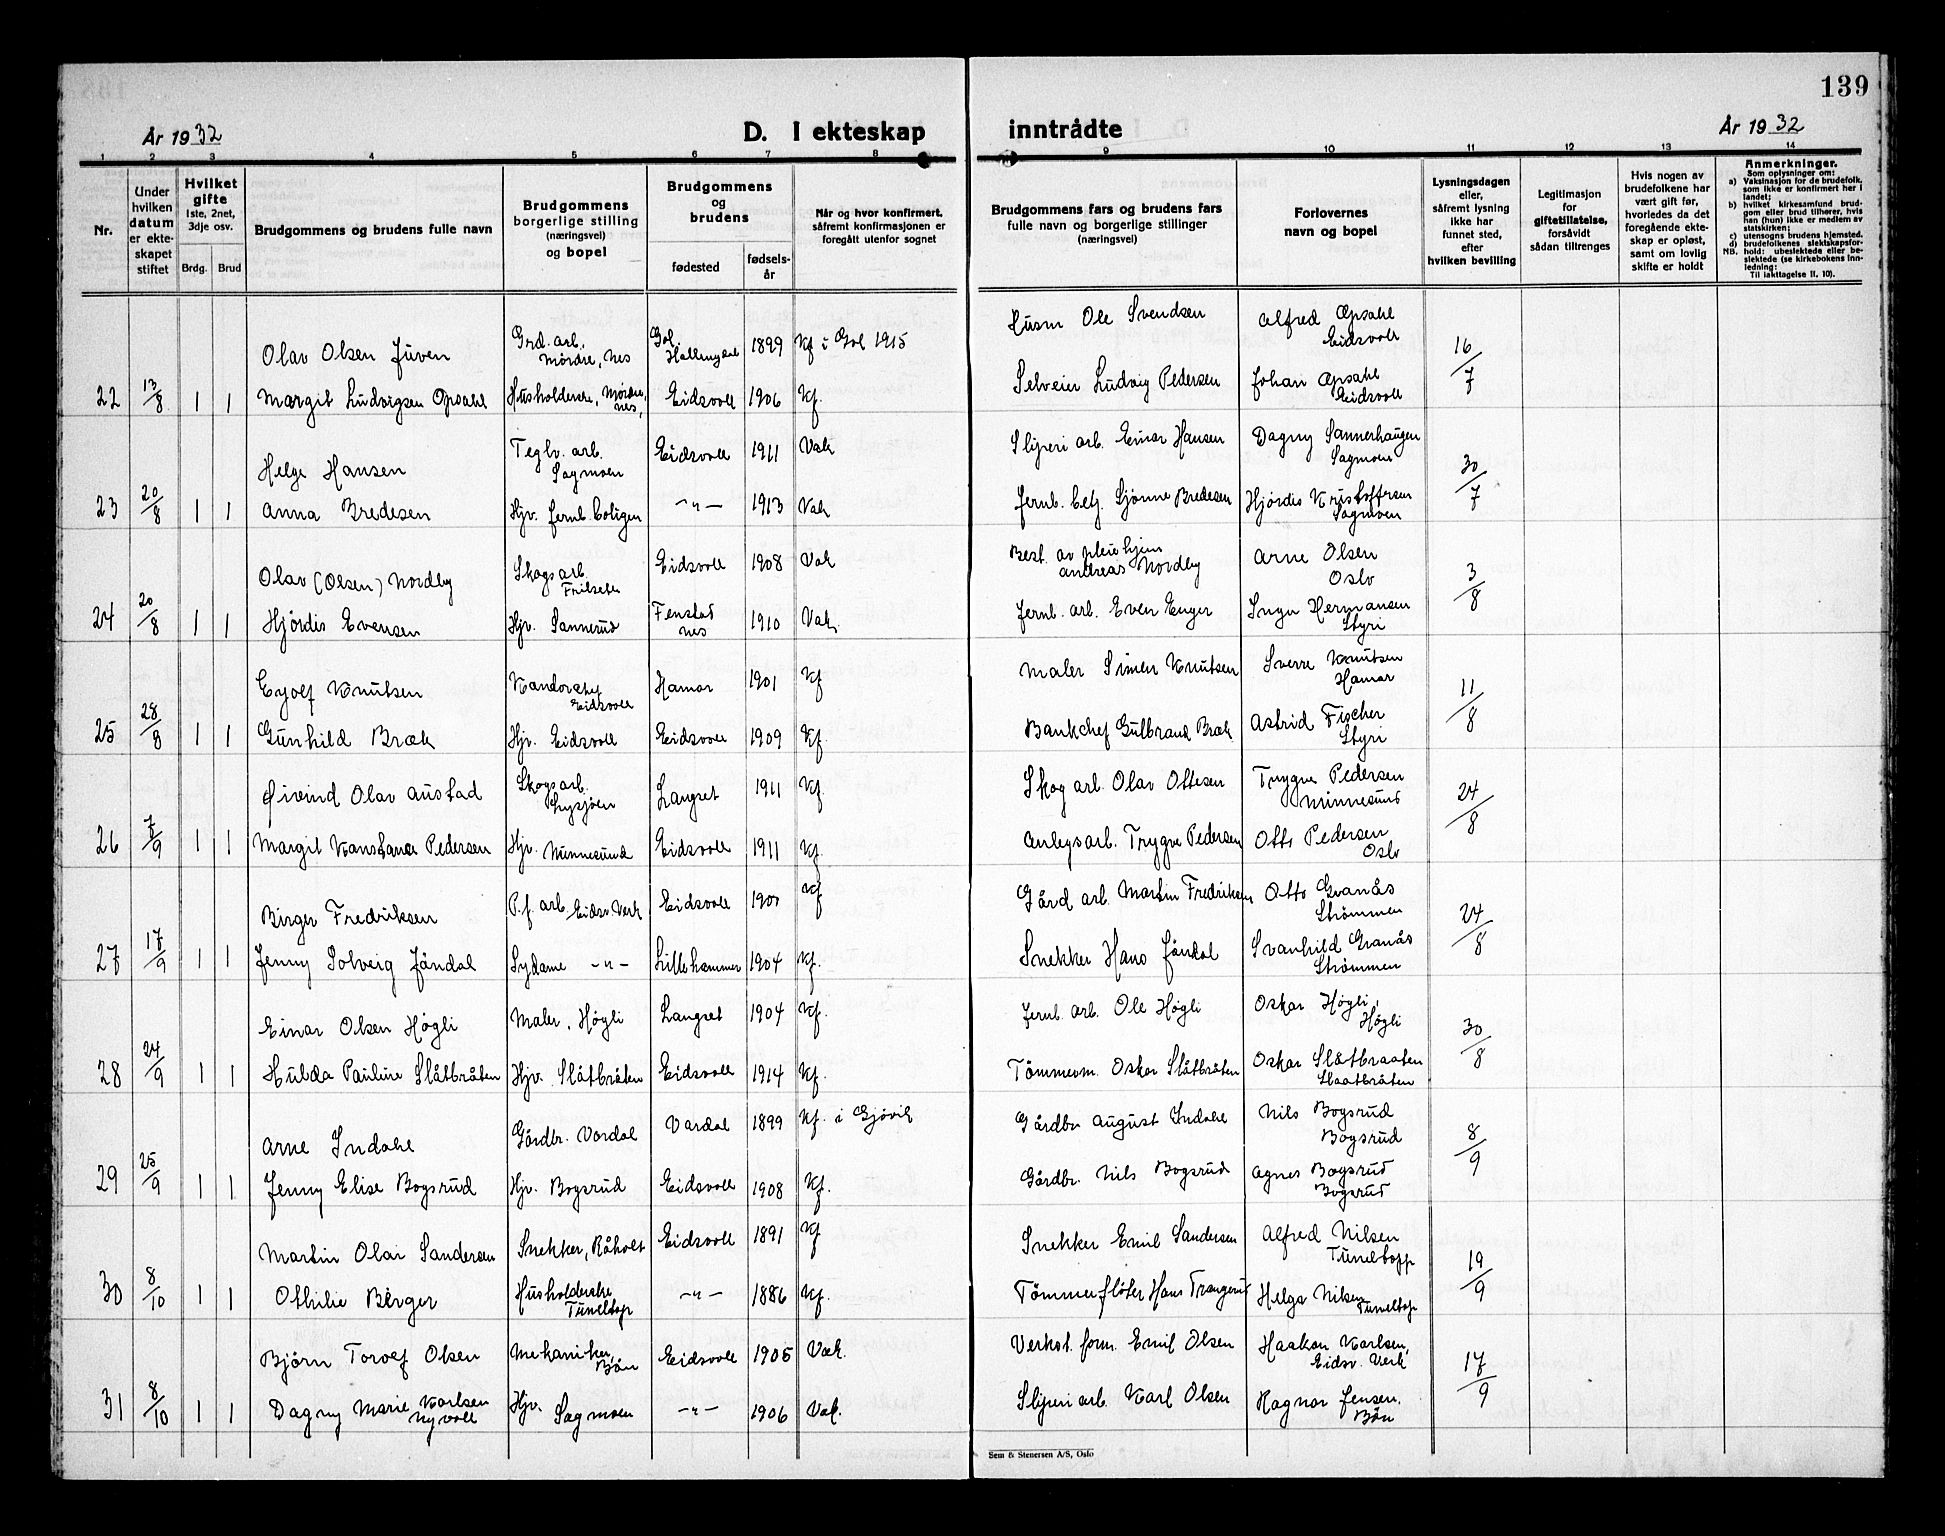 139
År 1932
D. I ekteskap inntrådte
År 1932
1 2 3 4 5 6 7 8 9 10 11 12 13 14
Nr.
Under hvilken datum er ekteskapet stiftet
Hvilket gifte
1ste, 2net, 3dje osv.
Brdg. Brud
Brudgommens og brudens fulle navn
Brudgommens og brudens borgerlige stilling (næringsvei) og bopel
Brudgommens og brudens
fødested
fødselsår
Når og hvor konfirmert, såfremt konfirmasjonen er foregått utenfor sognet
Brudgommens fars og brudens fars fulle navn og borgerlige stillinger (næringsvei)
Forlovernes navn og bopel
Lysningsdagen eller, såfremt lysning ikke har funnet sted, efter hvilken bevilling
Legitimasjon for giftetillatelse, forsåvidt sådan tiltrenges
Hvis nogen av brudefolkene har vært gift før, hvorledes da det foregående ekteskap er opløst, samt om lovlig skifte er holdt
Anmerkninger.
Som oplysninger om:
a) Vaksinasjon for de brudefolk, som ikke er konfirmert her i landet;
b) hvilket kirkesamfund brudgom eller brud tilhører, hvis han (hun) ikke er medlem av statskirken;
c) utensogns brudens hjemsted.
d) brudefolkenes slektskapsforhold: ubeslektede eller beslektede (se kirkebokens innledning:
NB. Til iakttagelse II. 10).
Olav Olsen Juven Grd. arb. Mørdre, Nes Gol, Hallingdal 1899 Kf i Gol 1915 Husm Ole Svendsen Alfred Opsahl Eidsvoll
22 13/8 1 1 Margit Ludvigsen Opsahl Husholderske, Mørdre, Nes, Eidsvoll 1906 Kf. Selveier Ludvig Pedersen Johan Opsahl Eidsvoll 16/7
Helge Hansen Teglv. arb. Sagmoen Eidsvoll 1911 Vak Sliperi arb. Einar Hansen Dagny Sannerhaugen Sagmoen
23 20/8 1 1 Anna Bredesen Hjv. Jernb. boligen -"- 1913 Vak Jernb. betj. Bredesen Hjørdis Kristoffersen Sagmoen 30/7
Olav (Olsen) Nordby Skogsarb. Frilset Eidsvoll 1908 Vak Best. av pleiehjem Andreas Nordby Arne Olsen Oslo
24 20/8 1 1 Hjørdis Evensen Hjv. Sannerud Fenstad Nes 1910 Vak. Jernb. arb. Even Enger Hermansen Styri 3/8
Eyolf Knutsen Eidsvoll Hamar 1901 Kf Maler Simen Knutsen Sverre Knutsen Hamar
25 28/8 1 1 Gunhild Bræk Hjv. Eidsvoll Eidsvoll 1909 Kf. Bankchef Gulbrand Bræk Astrid Fischer Styri 11/8
Øivind Olav Austad Skogsarb. Lysjøen Langset 1911 Kf Skog arb. Olav Ottesen Trygve Pedersen Minnesund
26 7/9 1 1 Margit Konstance Pedersen Hjv. Minnesund Eidsvoll 1911 Kf. Anlegsarb. Trygve Pedersen Otto Pedersen Oslo 24/8
Birger Fredriksen P.f. arb. Eidsv. Verk Eidsvoll Kf Gård arb. Martin Fredriksen Otto Granås Strømmen
27 17/9 1 1 Jenny Solveig Jøndal Sydame -"- Lillehammer 1904 Kf. Snekker Hans Jøndal Svanhild Granås Strømmen 24/8
Einar Olsen Høgli Maler, Høgli Langset 1904 Kf. Jernb. arb. Ole Høgli Oskar Høgli, Høgli
28 24/9 1 1 Hulda Pauline Slåtbråten Hjv. Slåtbråten Eidsvoll 1914 Kf. Tømmerm. Oskar Slåtbråten Oskar Slåtbraaten Slaatbråten 30/8
Arne Indahl Gårdbr. Vardal Vardal 1899 Kf. i Gjøvik Gårdbr August Indahl Nils Bogsrud Bogsrud
29 25/9 1 1 Jenny Elise Bogsrud Hjv. Bogsrud Eidsvoll 1908 Kf. Gårdbr. Nils Bogsrud Agnes Bogsrud Bogsrud 8/9
Martin Olai Sandersen Snekker, Råholt Eidsvoll 1891 Kf Snekker Emil Sandersen Alfred Nilsen Tuneltopp
30 8/10 1 1 Othilie Berger Husholderske Tuneltop -"- 1886 Kf. Tømmerfløter Hans Trangerud Helga Nilsen Tuneltop 19/9
Bjørn Torolf Olsen Mekaniker, Bøn Eidsvoll 1905 Vak. Verkst. form. Emil Olsen Haakon Karlsen, Eidsv. Verk
31 8/10 1 1 Dagny Marie Karlsen Nyvoll Hjv. Sagmoen -"- 1906 Vak. Sliperi arb. Karl Olsen Ragnar Jensen. Bøn 17/9
Sem & Stenersen A/S, Oslo